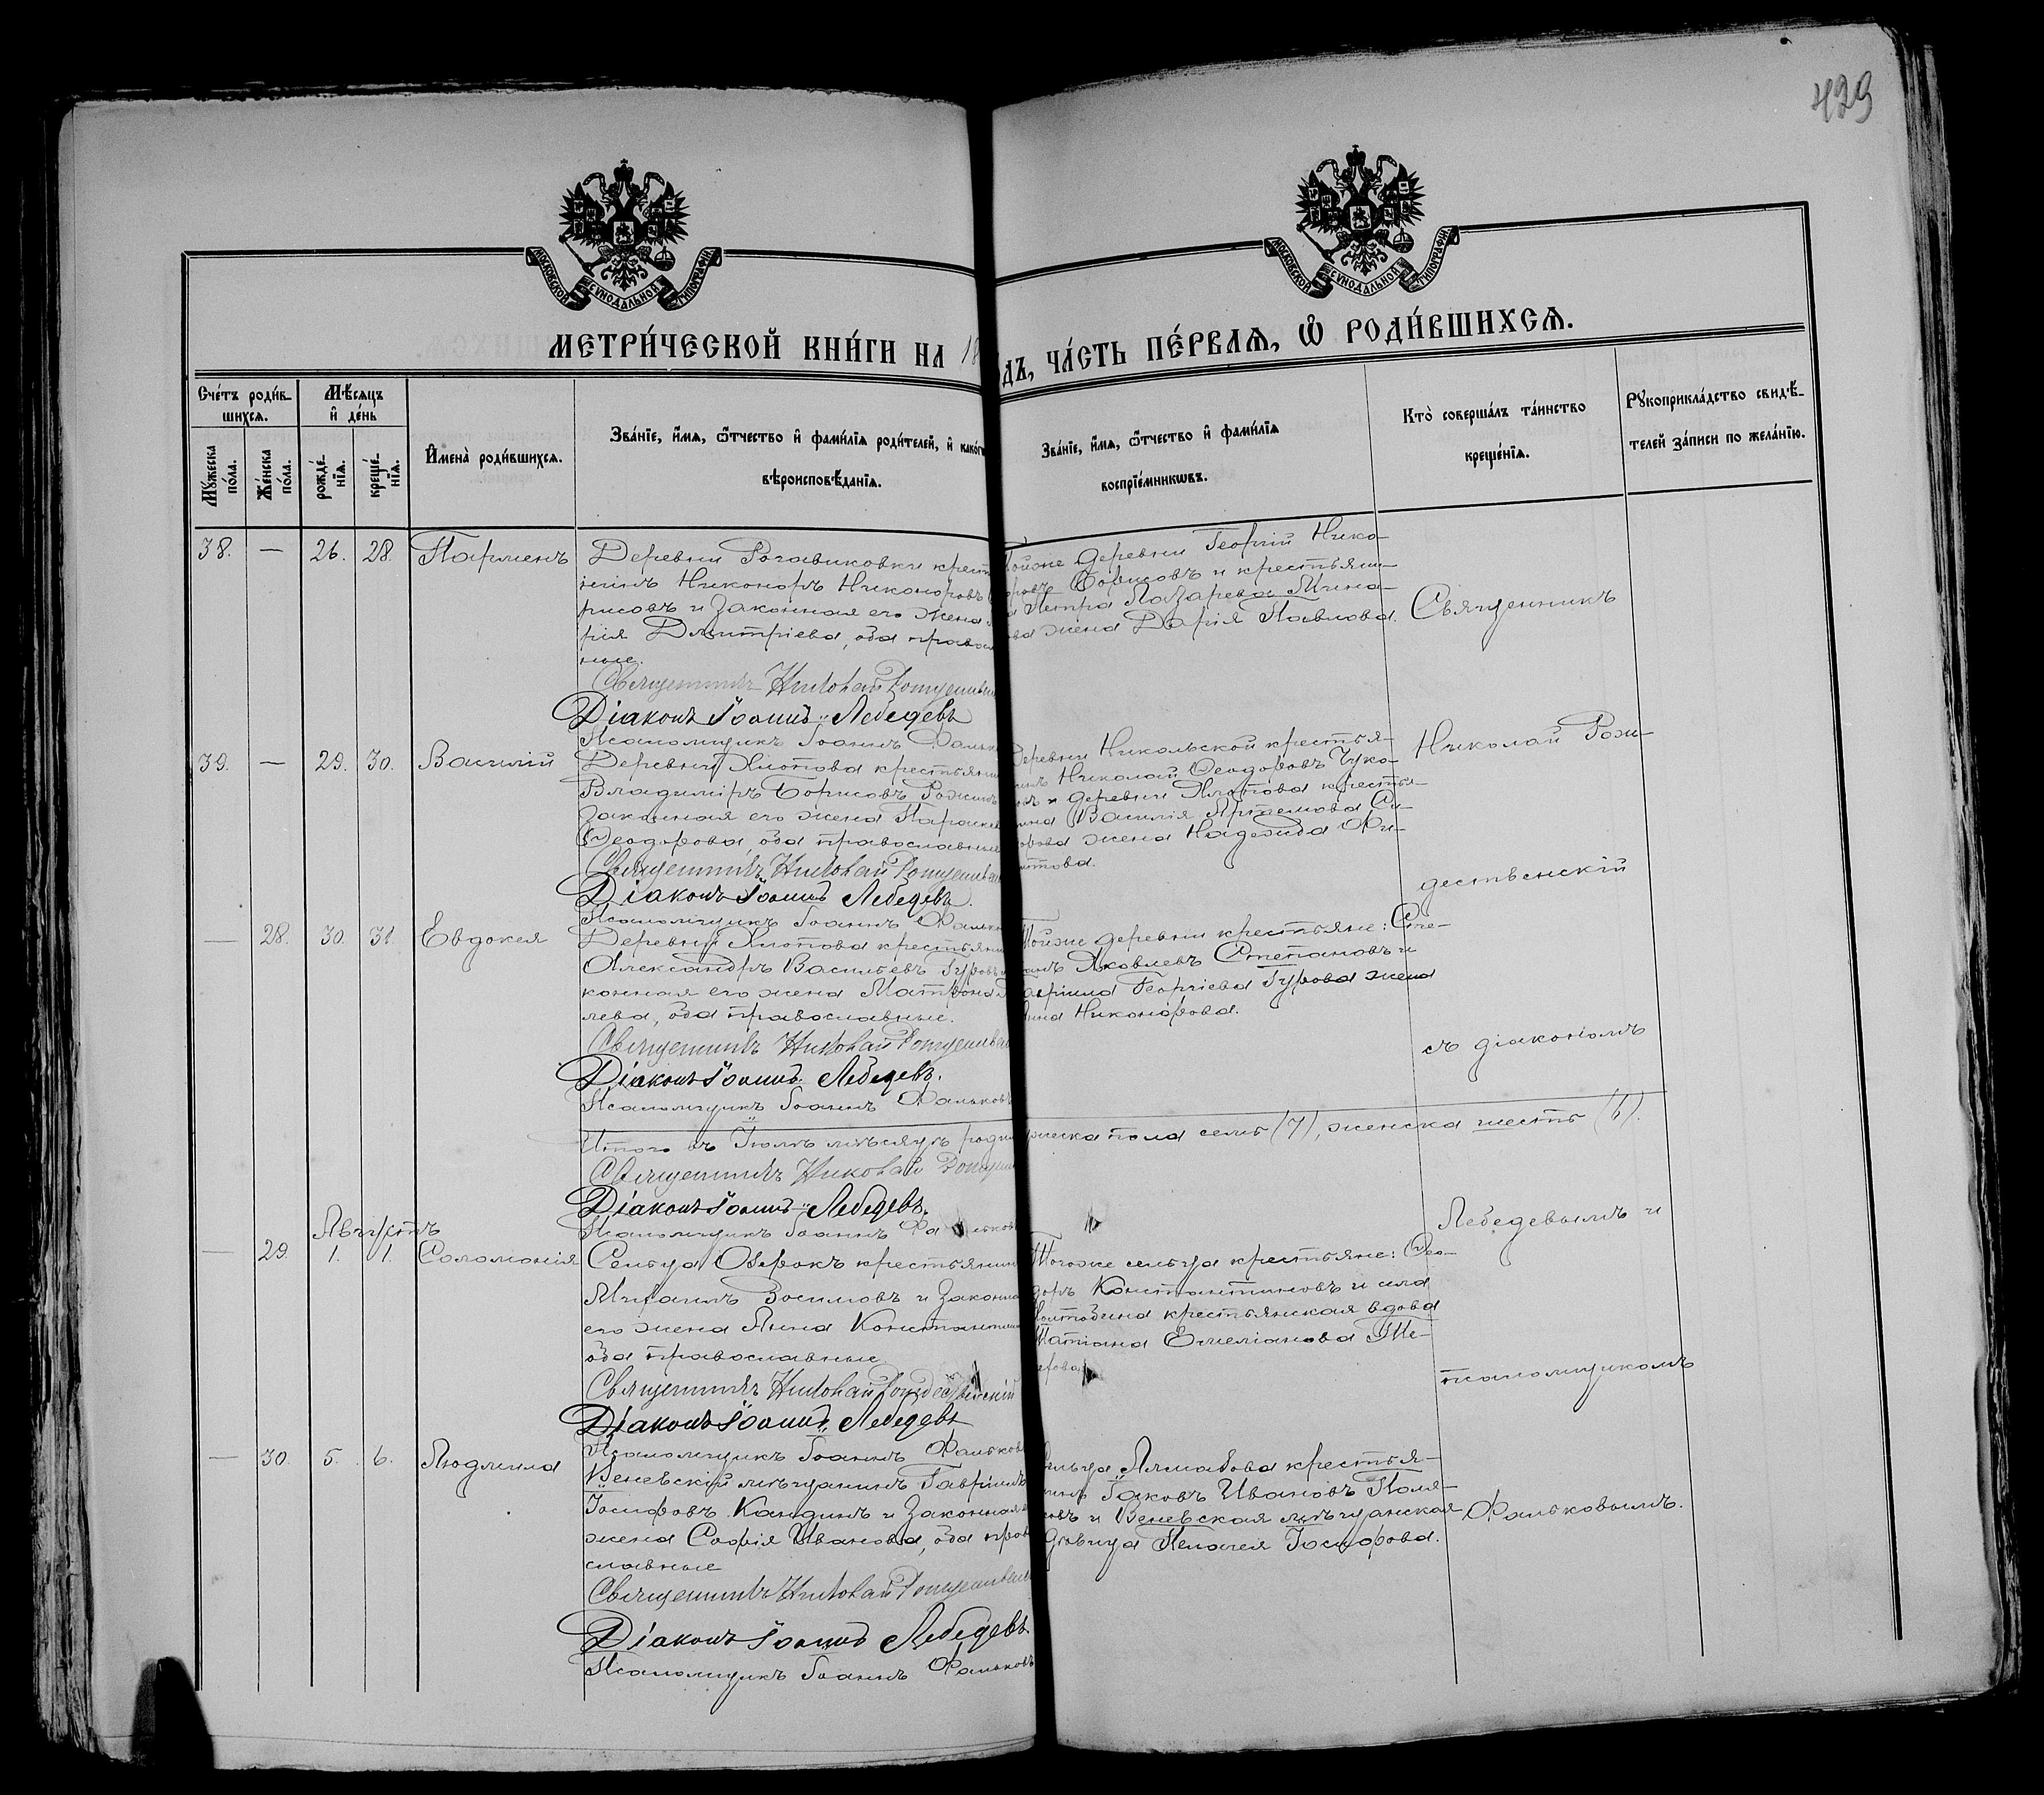 429
МОСКОВСКОЙ СУНОДАЛЬНОЙ ТИПОГРАФІИ
МОСКОВСКОЙ СУНОДАЛЬНОЙ ТИПОГРАФІИ
МЕТРИ́ЧЕСКОЙ КНИ́ГИ НА 18
ДЪ, ЧА́СТЬ ПЕ́РВАѦ, Ѡ РОДИ́ВШИХСѦ.
Сче́тъ роди́в-
шихсѧ.
Мѣ́сѧцъ
и҆ де́нь
Мꙋ́жеска по́ла.
Же́нска по́ла.
рожде́-нїѧ.
креще́-нїѧ.
И҆мена̀ роди́вшихсѧ.
Зва́нїе, и҆́мѧ, ѻ҆́тчество и҆ фами́лїѧ роди́телей, и҆ како́гѡ
вѣроисповѣ́данїѧ.
Зва́нїе, и҆́мѧ, ѻ҆́тчество и҆ фами́лїѧ
воспрїе́мникѡвъ.
Кто̀ соверша́лъ та́инство
креще́нїѧ.
Рꙋкоприкла́дство свидѣ́-
телей за́писи по жела́нїю.
38. — 26. 28. Парменъ
Деревни Рогавиковки крест
нинъ Никоноръ Никоноровъ
рисовъ и законная его жена
рія Дмитріева, оба правос
ные.
Священникъ Николай Рождествен
Діаконъ Іоаннъ Лебедевъ
Псаломщикъ Іоаннъ Фальк
тойже деревни Георгій Нико-
норовъ Борисовъ и крестьяни-
на Петра Лазарева Мина-
ва жена Дарія Павлова.
Священникъ
39. — 29. 30. Василій
Деревни Хлопова крестьянин
Владиміръ Борисовъ Рожин
законная его жена Параскев
Ѳеодорова, оба православные
Священникъ Николай Рождествен
Діаконъ Іоаннъ Лебедевъ.
Псаломщикъ Іоаннъ Фальк
Деревни Никольской крестья-
нинъ Николай Ѳеодоровъ Чуко-
и деревни Хлопова крестья-
нина Василія Артемова
жена Надежда Фи-
Николай Рож-
дественскій
— 28. 30. 31. Евдокея
Деревни Хлопова крестьянин
Александръ Васильевъ Гуровъ
конная его жена Матрона
лева, оба православные.
Священникъ Николай Рождествен
Діаконъ Іоаннъ Лебедевъ.
Псаломщикъ Іоаннъ Фальковъ
Тойже деревни крестьяне: Сте-
панъ Яковлевъ Степановъ и
Гавріила Георгіева Гурова жена
Никонорова.
съ діакономъ
Итого въ Іюлѣ мѣсяцѣ роди
жеска пола семь (7), женска шесть (6).
Священникъ Николай Рождеств
Діаконъ Іоаннъ Лебедевъ.
Псаломщикъ Іоаннъ Фальков
Лебедевымъ и
Августъ
— 29. 1. 1. Соломонія
Сельца Озерокъ крестьянин
Михаилъ Зосимовъ и законна
его жена Анна Константин
оба православные
Священникъ Николай Рождественскій
Діаконъ Іоаннъ Лебедевъ
Псаломщикъ Іоаннъ Фальков
Тогоже сельца крестьяне: Ѳео-
доръ Константиновъ и села
крестьянская вдова
Татіана Емеліанова
псаломщикомъ
— 30. 5. 6. Людмила
Веневскій мѣщанинъ Гавріилъ
Іосифовъ Кандинъ и законная
жена Софія Иванова, оба прав
славные
Священникъ Николай Рождествен
Діаконъ Іоаннъ Лебедевъ
Псаломщикъ Іоаннъ Фальковъ
сельца крестья-
нинъ Іаковъ Ивановъ Поля-
ковъ и Веневская мѣщанская
дѣвица Пелагея Іосифова.
Фальковымъ.